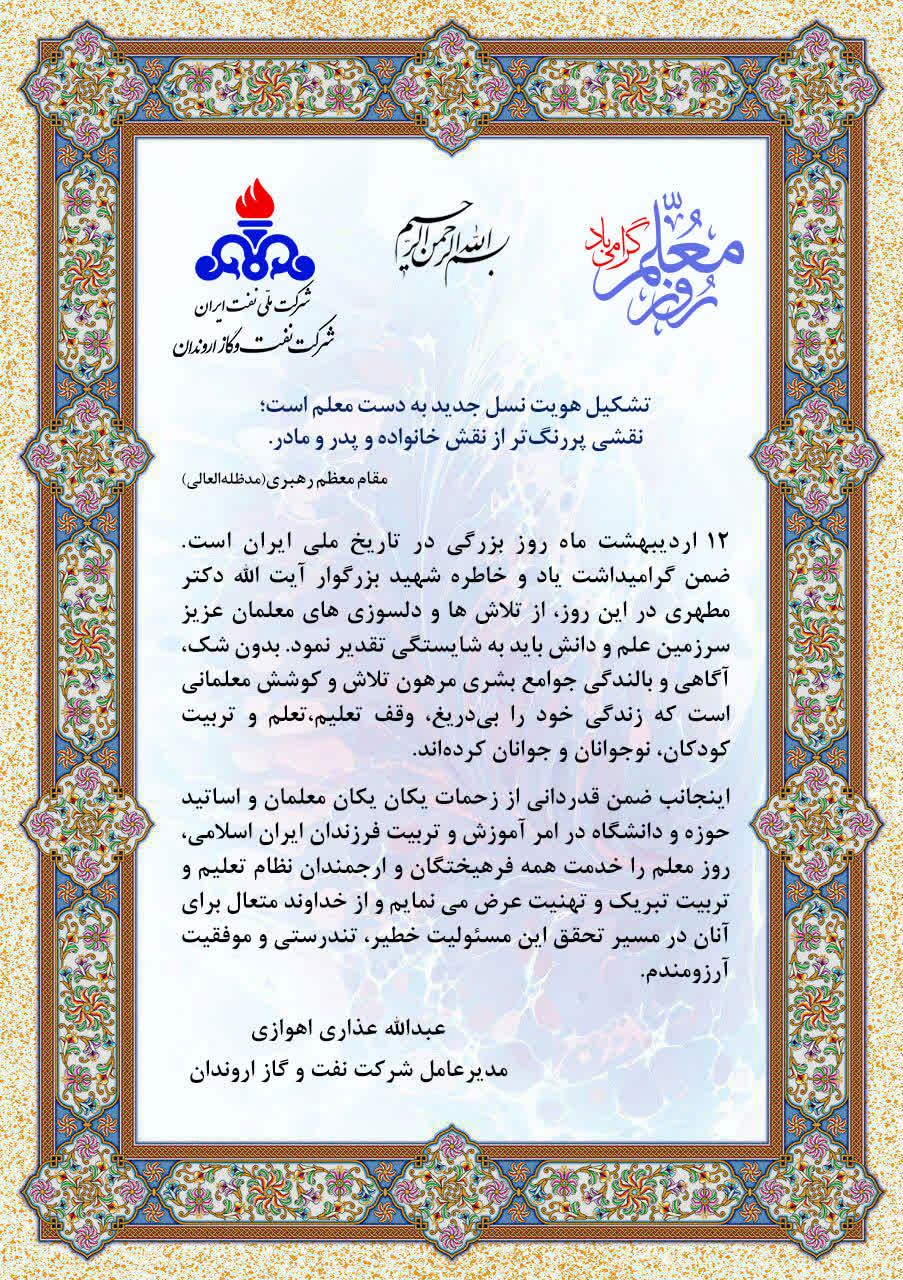 روز معلّم گرامی باد
بسم الله الرحمن الرحیم
شرکت ملی نفت ایران
شرکت نفت و گاز اروندان
تشکیل هویت نسل جدید به دست معلم است؛
نقشی پررنگ‌تر از نقش خانواده و پدر و مادر.
مقام معظم رهبری(مدظله‌العالی)
۱۲ اردیبهشت ماه روز بزرگی در تاریخ ملی ایران است.
ضمن گرامیداشت یاد و خاطره شهید بزرگوار آیت الله دکتر
مطهری در این روز، از تلاش ها و دلسوزی های معلمان عزیز
سرزمین علم و دانش باید به شایستگی تقدیر نمود. بدون شک،
آگاهی و بالندگی جوامع بشری مرهون تلاش و کوشش معلمانی
است که زندگی خود را بی‌دریغ، وقف تعلیم،تعلم و تربیت
کودکان، نوجوانان و جوانان کرده‌اند.
اینجانب ضمن قدردانی از زحمات یکان یکان معلمان و اساتید
حوزه و دانشگاه در امر آموزش و تربیت فرزندان ایران اسلامی،
روز معلم را خدمت همه فرهیختگان و ارجمندان نظام تعلیم و
تربیت تبریک و تهنیت عرض می نمایم و از خداوند متعال برای
آنان در مسیر تحقق این مسئولیت خطیر، تندرستی و موفقیت
آرزومندم.
عبدالله عذاری اهوازی
مدیرعامل شرکت نفت و گاز اروندان